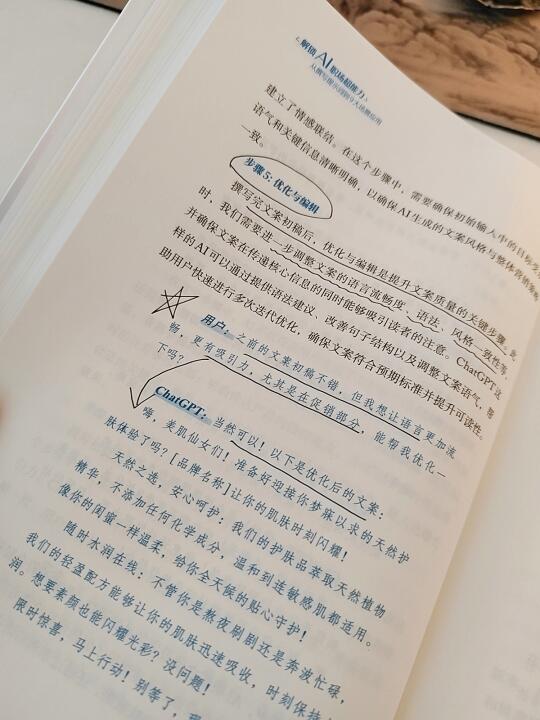 解锁AI职场超能力
从撰写提示词到9大场景应用
建立了情感联结。在这个步骤中，需要确保初始输入中的目标
语气和关键信息清晰明确，以确保AI生成的文案风格与整体营销策略
一致。
步骤5：优化与编辑
撰写完文案初稿后，优化与编辑是提升文案质量的关键步骤。此
时，我们需要进一步调整文案的语言流畅度、语法、风格一致性等，
并确保文案在传递核心信息的同时能够吸引读者的注意。ChatGPT这
样的AI可以通过提供语法建议、改善句子结构以及调整文案语气，帮
助用户快速进行多次迭代优化，确保文案符合预期标准并提升可读性。
用户：之前的文案初稿不错，但我想让语言更加流
畅，更有吸引力，尤其是在促销部分，能帮我优化一
下吗？
ChatGPT：当然可以！以下是优化后的文案：
嗨，美肌仙女们！准备好迎接你梦寐以求的天然护
肤体验了吗？[品牌名称]让你的肌肤时刻闪耀！
天然之选，安心呵护：我们的护肤品萃取天然植物
精华，不添加任何化学成分，温和到连敏感肌都适用。
像你的闺蜜一样温柔，给你全天候的贴心守护！
随时水润在线：不管你是熬夜刷剧还是奔波忙碌，
我们的轻盈配方能够让你的肌肤迅速吸收，时刻保持
润。想要素颜也能闪耀光彩？没问题！
限时惊喜，马上行动！别等了，